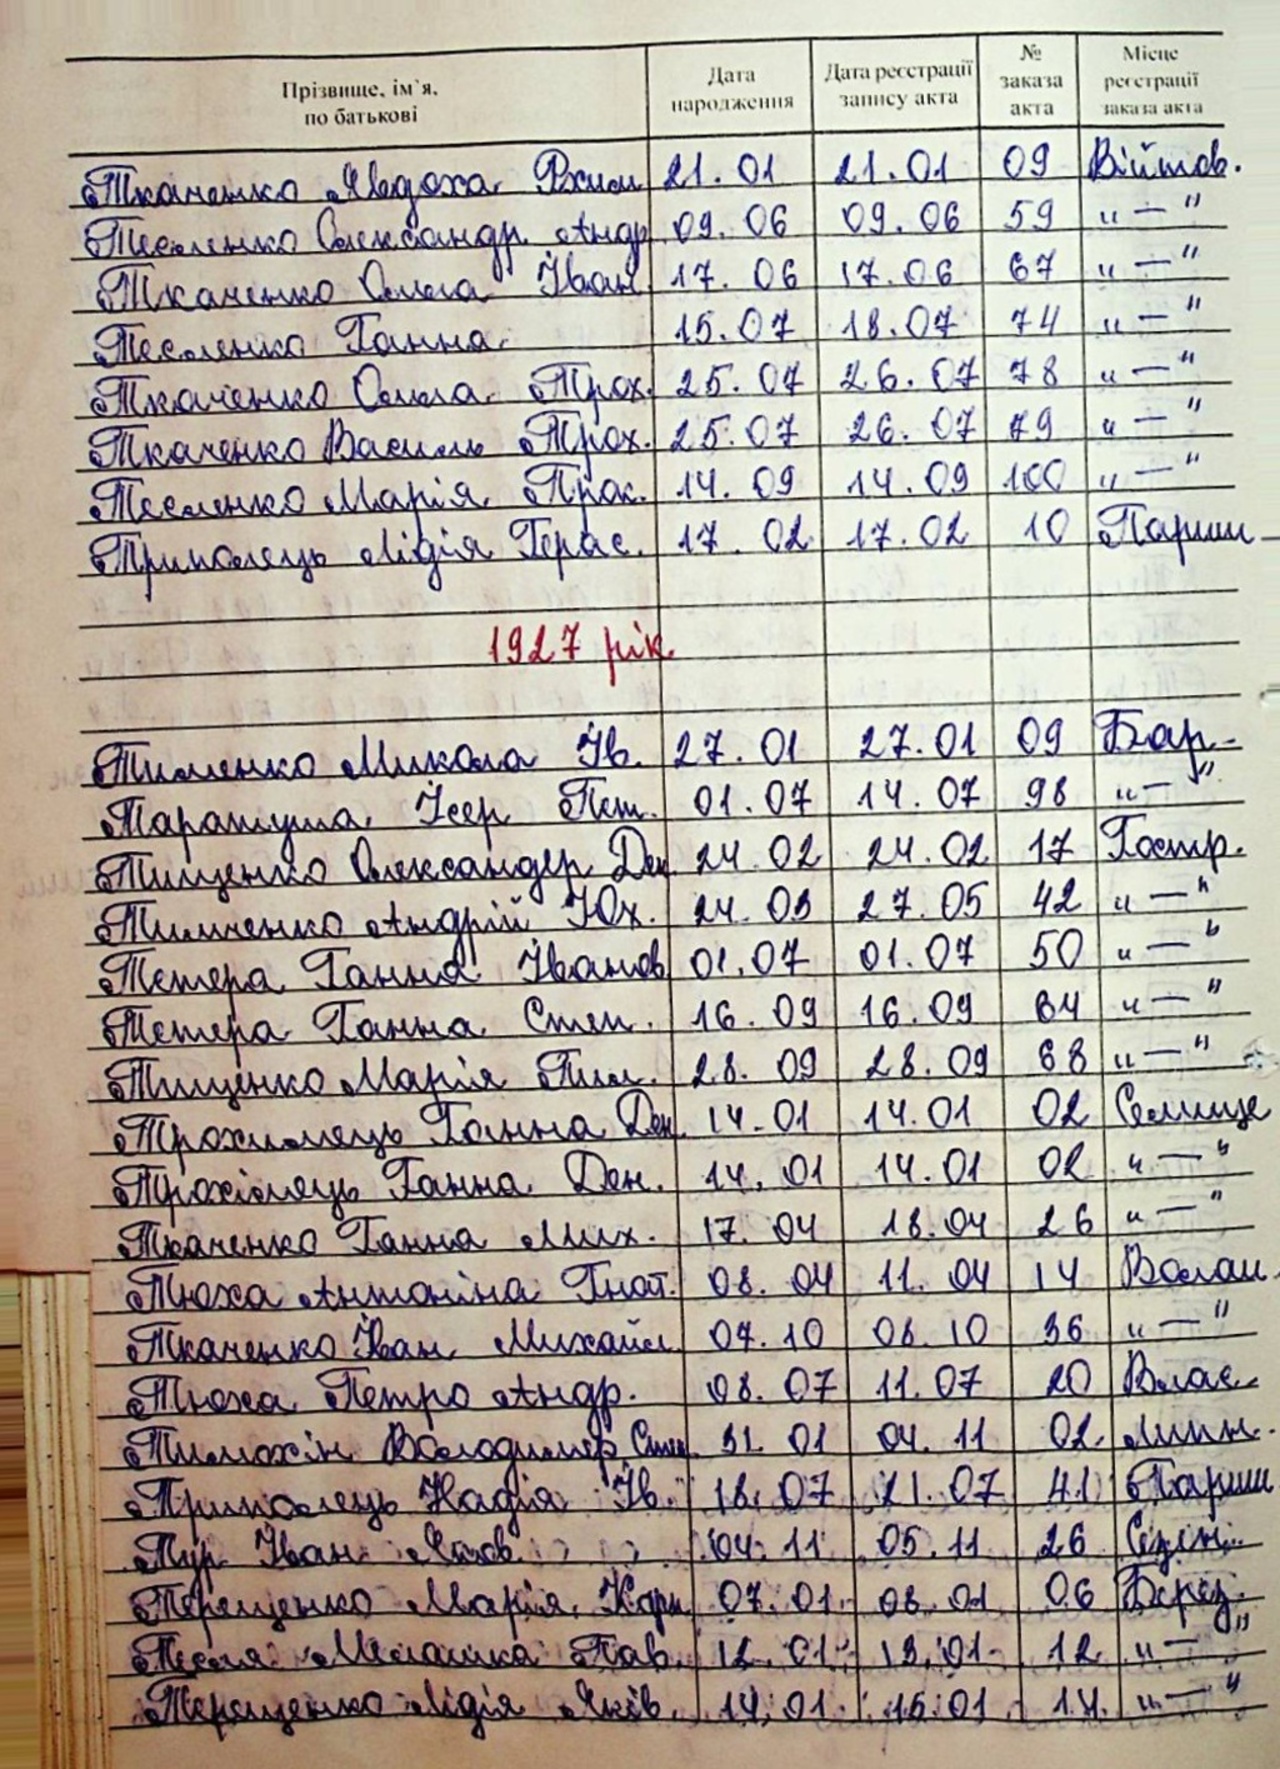 Прізвище, ім`я, по батькові Дата народження Дата реєстрації запису акта № заказа акта Місце реєстрації заказа акта
Ткаченко Явдоха 21.01 21.01 09 Війтов.
Тесленко Олександр Андр 09.06 09.06 59 " — "
Ткаченко Ольга Іван. 17.06 17.06 67 " — "
Тесленко Ганна 15.07 18.07 74 " — "
Ткаченко Ольга Трох. 25.07 26.07 78 " — "
Ткаченко Василь Трох. 25.07 26.07 79 " — "
Тесленко Марія Прок. 14.09 14.09 100 " — "
Триполець Лідія Герас. 17.02 17.02 10 Париш
1927 рік.
Тименко Микола Ів. 27.01 27.01 09 Бар.
Таратуша Ісер Пет. 01.07 14.07 98 " — "
Тищенко Олександер Ден 24.02 24.02 17 Гостр.
Тимченко Андрій Юх. 24.03 27.05 42 " — "
Тетера Ганна Іванов 01.07 01.07 50 " — "
Тетера Ганна Степ. 16.09 16.09 64 " — "
Тищенко Марія Пил. 28.09 28.09 68 " — "
Трохимець Ганна Ден. 14.01 14.01 02 Селище
Трохімець Ганна Ден. 14.01 14.01 02 " — "
Ткаченко Ганна Мих. 17.04 18.04 26 " — "
Тюха Антоніна Гнат. 08.04 11.04 14 Волош
Ткаченко Іван Михайл 07.10 08.10 36 " — "
Тюха Петро Андр. 08.07 11.07 20 Влас.
Тимохін Володимир Степ. 31.01 04.11 02. Липн.
Триполець Надія Ів. 18.07 21.07 41 Париш
Тур Іван Яков. 04.11 05.11 26
Терещенко Марія Карп. 07.01 08.01 06 Берез.
Тесля Мелашка Пав. 12.01 13.01 12. " — "
Терещенко Лідія Яків. 14.01 15.01 14. " — "